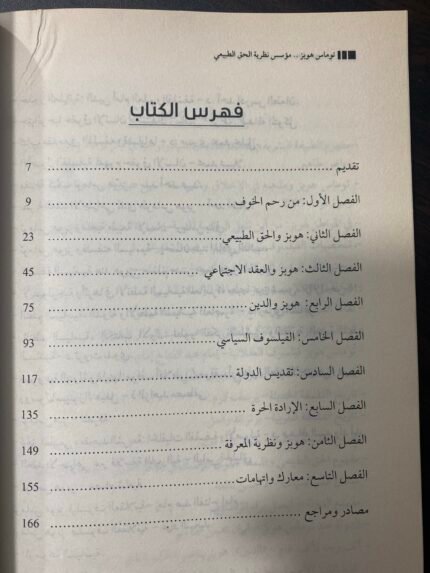 توماس هوبز.. مؤسس نظرية الحق الطبيعي
فهرس الكتاب
تقديم ........ 7
الفصل الأول: من رحم الخوف ........ 9
الفصل الثاني: هوبز والحق الطبيعي ........ 23
الفصل الثالث: هوبز والعقد الاجتماعي ........ 45
الفصل الرابع: هوبز والدين ........ 75
الفصل الخامس: الفيلسوف السياسي ........ 93
الفصل السادس: تقديس الدولة ........ 117
الفصل السابع: الإرادة الحرة ........ 135
الفصل الثامن: هوبز ونظرية المعرفة ........ 149
الفصل التاسع: معارك واتهامات ........ 155
مصادر ومراجع ........ 166